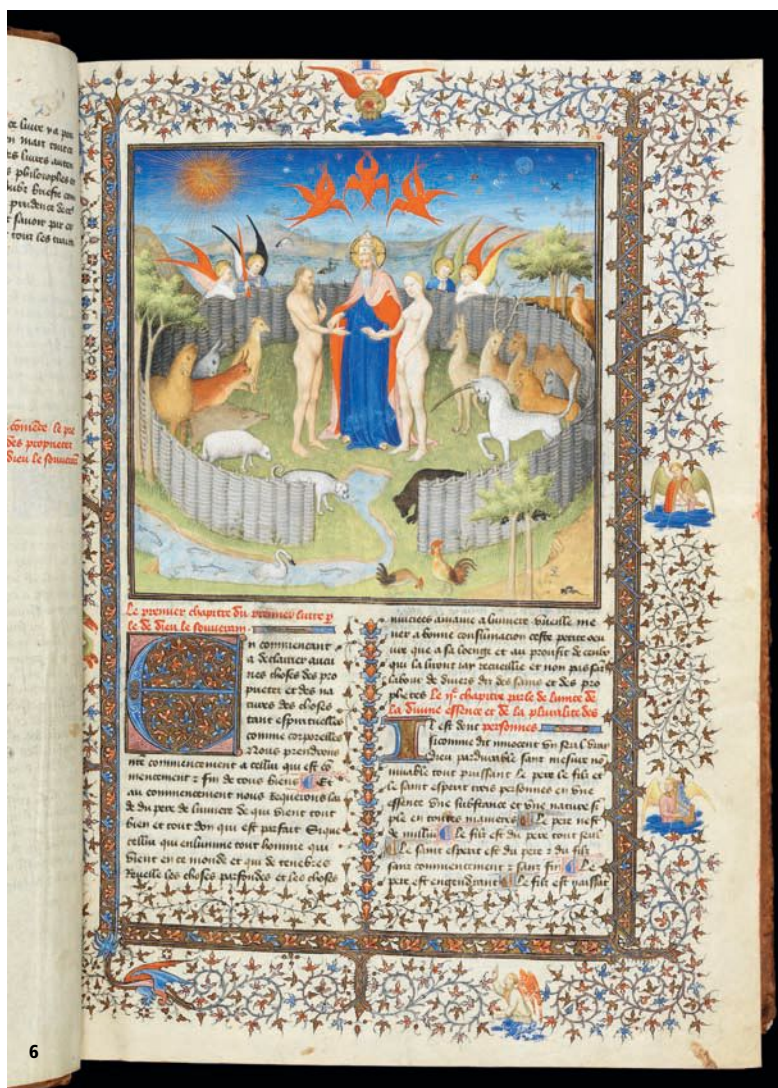 ce livre y a
les livres
philosophes
savoir par ce
des proprietez
Dieu le souverain
Le premier chapitre du premier livre p
le de Dieu le souverain
En commencant
a declairer aucu
nes choses des pro
prietez et des na
tures des choses
tant espirituelles
comme corporelles
Nous prendrons
nre commencement a cellui qui est co
mencement z fin de tous biens Et
au commencement nous Requerons lai
de du pere de lumiere de qui vient tout
bien et tout don qui est parfait Si que
cellui qui enlumine tout homme qui
vient en ce monde et qui de tenebres
Reveille les choses parfondes et les choses
muciees amaine a lumiere vueille me
ner a bonne consumacion ceste petite oeu
vre que a sa loenge et au proufit de ceulx
qui la liront iay recueillie et non pas sās
labour de divers diz des sains et des pro
phetes Le ije chapitre parle de lunite de
la divine essence et de la pluralite des
personnes
Il est dont
sicomme dit innocent vn seul vrai
dieu pardurable sans mesure no
muable tout puissant le pere le filz et
le saint esperit trois personnes en vne
essence vne substance et vne nature si
ple en toutes manieres Le pere nest
de nullui Le filz est du pere tout seul
Le saint esperit est du pere z du filz
sans commencement z sans fin Le
pere est engendrant Le filz est naissāt
6